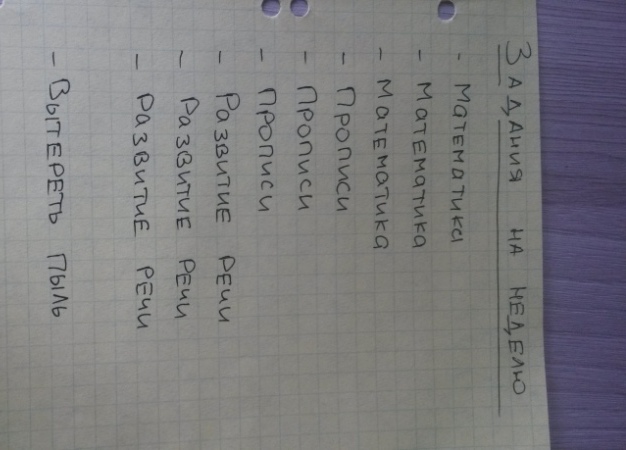 Задания на неделю
- Математика
- Математика
- Математика
- Прописи
- Прописи
- Прописи
- Развитие речи
- Развитие речи
- Развитие речи
- Вытереть пыль